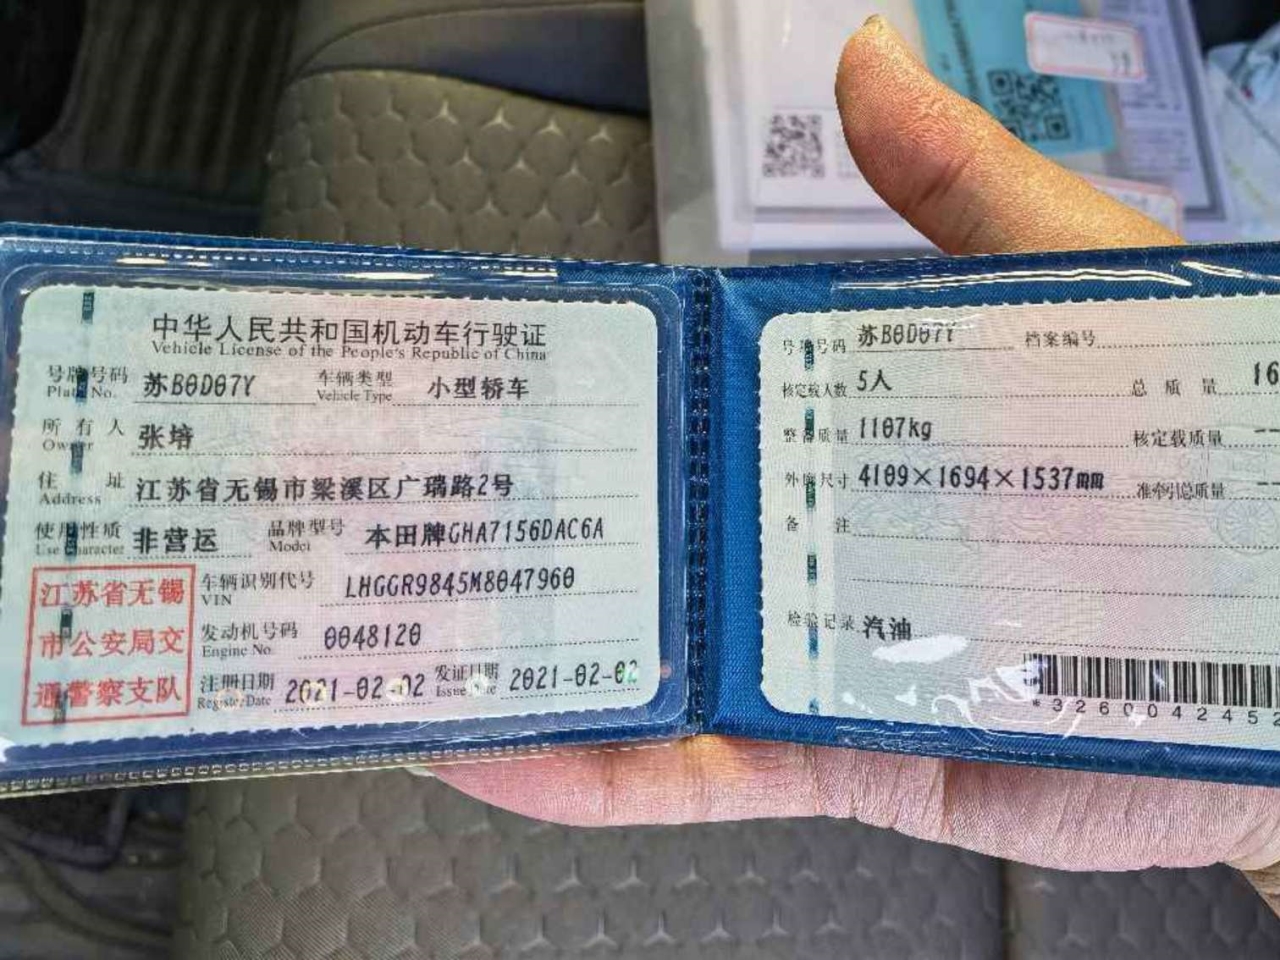 中华人民共和国机动车行驶证
Vehicle License of the People's Republic of China
号牌号码 苏B0D07Y 车辆类型 小型轿车
Plate No. Vehicle Type
所有人 张培
Owner
住址 江苏省无锡市梁溪区广瑞路2号
Address
使用性质 非营运 品牌型号 本田牌GHA7156DAC6A
Use Character Model
江苏省无锡
市公安局交
通警察支队
车辆识别代号 LHGGR9845M8047960
VIN
发动机号码 0048120
Engine No.
注册日期 2021-02-02 发证日期 2021-02-02
Register Date Issue Date
号牌号码 苏B0D07Y 档案编号
核定载人数 5人 总质量 16
整备质量 1107kg 核定载质量 --
外廓尺寸 4109×1694×1537mm 准牵引总质量 --
备注
检验记录 汽油
*326004245